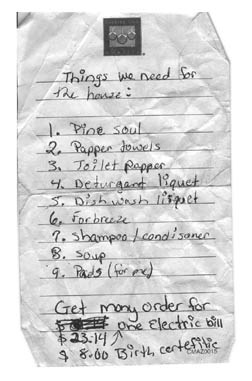 Things we need for
the house:
1. Pine soul
2. Papper towels
3. Toilet papper
4. Deturgant liquet
5. Dish wash liquet
6. Forbreeze
7. Shampoo/condisoner
8. Soup
9. Pads (for me)
Get mony order for
$ one Electric bill
$ 23.14
$ 8.00 Birth certefitic
CMAZ0015